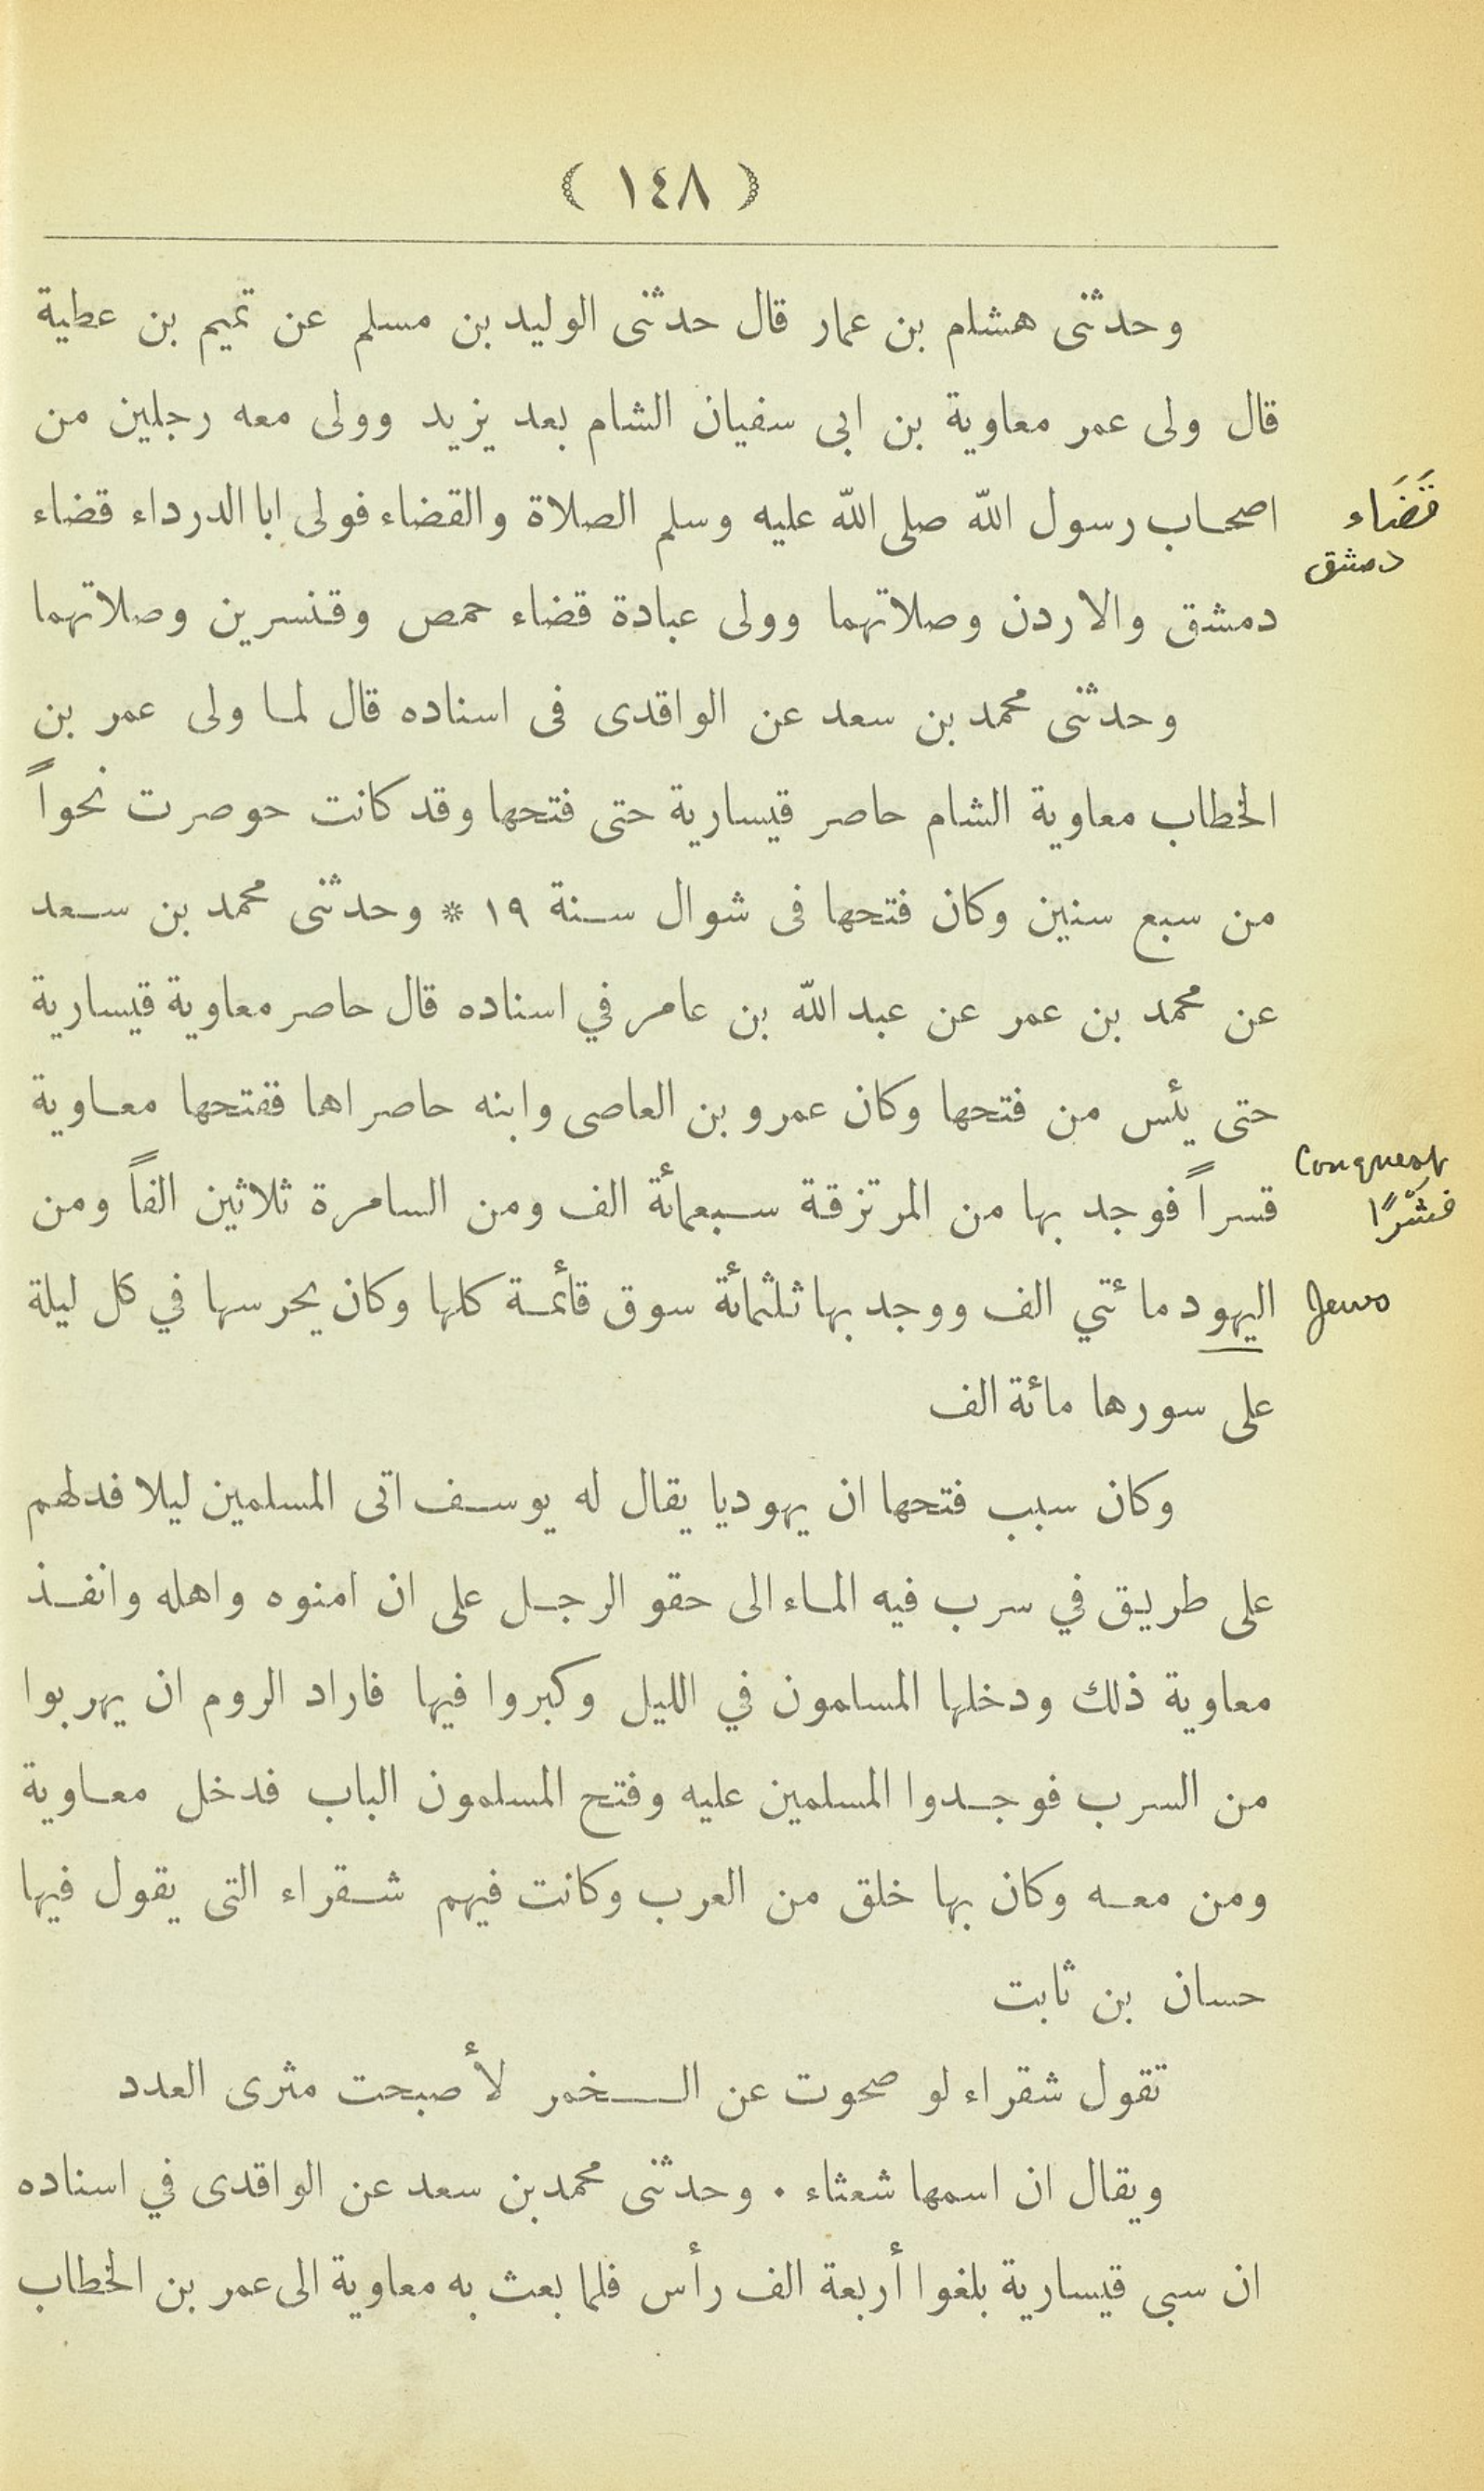 ( ١٤٨ )
وحدثنى هشام بن عمار قال حدثنى الوليد بن مسلم عن تميم بن عطية
قال ولى عمر معاوية بن ابى سفيان الشام بعد يزيد وولى معه رجلين من
اصحاب رسول الله صلى الله عليه وسلم الصلاة والقضاء فولى ابا الدرداء قضاء
قَضَاء
دمشق
دمشق والاردن وصلاتهما وولى عبادة قضاء حمص وقنسرين وصلاتهما
وحدثنى محمد بن سعد عن الواقدى فى اسناده قال لما ولى عمر بن
الخطاب معاوية الشام حاصر قيسارية حتى فتحها وقد كانت حوصرت نحواً
من سبع سنين وكان فتحها فى شوال سنة ١٩ * وحدثنى محمد بن سعد
عن محمد بن عمر عن عبد الله بن عامر في اسناده قال حاصر معاوية قيسارية
حتى يئس من فتحها وكان عمرو بن العاصى وابنه حاصراها ففتحها معاوية
Conquest
قسراً فوجد بها من المرتزقة سبعمائة الف ومن السامرة ثلاثين الفاً ومن
قَسْرًا
اليهود مائتي الف ووجد بها ثلثمائة سوق قائمة كلها وكان يحرسها في كل ليلة
Jews
على سورها مائة الف
وكان سبب فتحها ان يهوديا يقال له يوسف اتى المسلمين ليلا فدلهم
على طريق في سرب فيه الماء الى حقو الرجل على ان امنوه واهله وانفذ
معاوية ذلك ودخلها المسلمون في الليل وكبروا فيها فاراد الروم ان يهربوا
من السرب فوجدوا المسلمين عليه وفتح المسلمون الباب فدخل معاوية
ومن معه وكان بها خلق من العرب وكانت فيهم شقراء التى يقول فيها
حسان بن ثابت
تقول شقراء لو صحوت عن الخمر لأصبحت مثرى العدد
ويقال ان اسمها شعثاء . وحدثنى محمد بن سعد عن الواقدى في اسناده
ان سبى قيسارية بلغوا أربعة الف رأس فلما بعث به معاوية الى عمر بن الخطاب